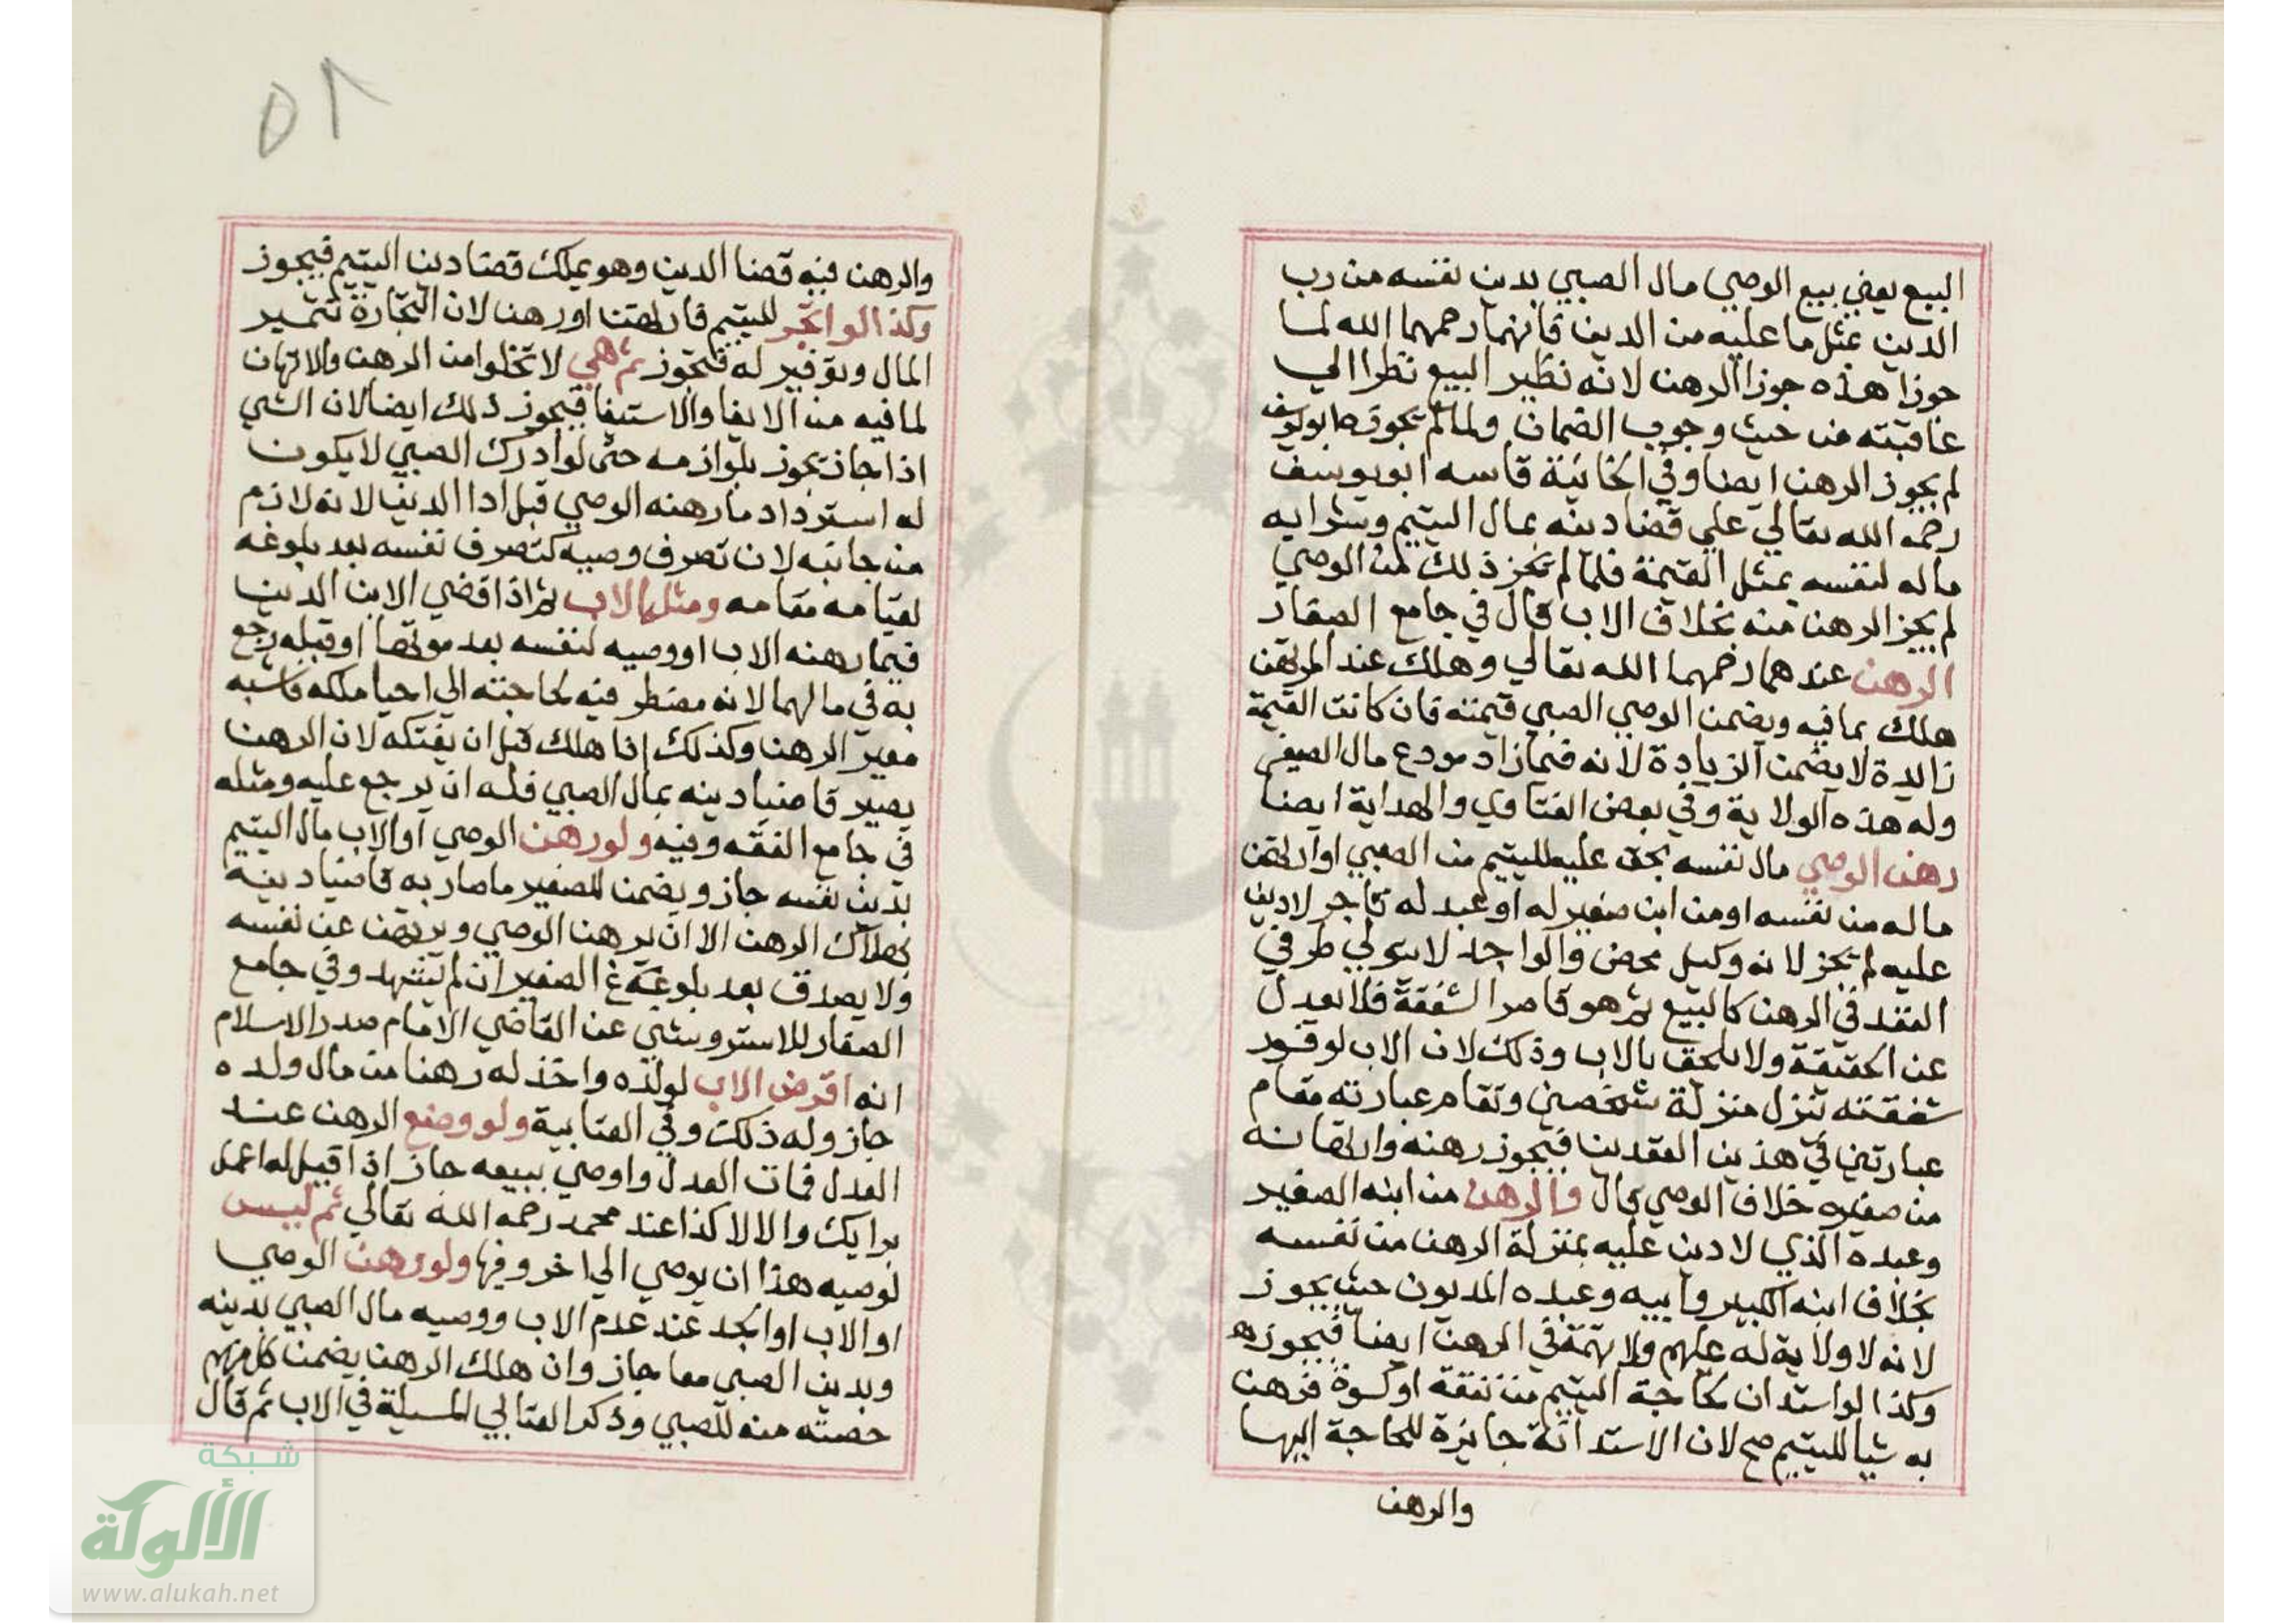 البيع يعني بيع الوصي مال الصبي بدين نفسه من رب
الدين بمثل ما عليه من الدين فانهما رحمهما الله لما
جوزا هذه جوزا الرهن لانه نظير البيع نظرا الي
عاقبته من حيث وجوب الضمان ولما لم ابو يوسف
لم يجوز الرهن ايضا وفي الخانية قاسه ابو يوسف
رحمه الله تعالي علي قضا دينه بمال اليتيم وشرايه
ماله لنفسه بمثل القيمة فلما لم تجز ذلك من الوصي
لم يجز الرهن منه بخلاف الاب قال في جامع الصغار
الرهن عندهما رحمهما الله تعالي وهلك عند المرتهن
هلك بما فيه ويضمن الوصي الصبي قيمته فان كانت القيمة
زايدة لا يضمن الزيادة لانه فيما زاد مودع مال الصغير
وله هذه الولاية وفي بعض الفتاوي والهداية ايضا
رهن الوصي مال نفسه بحق عليه لليتيم من الصبي او ارتهن
ماله من نفسه او من ابن صغير له او عبد له تاجر لا دين
عليه لم يجز لانه وكيل محض والواحد لا يتولي طرفي
العقد في الرهن كالبيع ثم هو قاصر الشفقة فلا يعدل
عن الحقيقة ولا يلحق بالاب وذلك لان الاب لوفور
شفقته تنزل منزلة شخصين وتقام عبارته مقام
عبارتين في هذين العقدين فيجوز رهنه وارتهانه
من صغيره خلاف الوصي قال والرهن من ابنه الصغير
وعبده الذي لا دين عليه بمنزلة الرهن من نفسه
بخلاف ابنه الكبير وابيه وعبده المديون حيث يجوز
لانه لا ولاية له عليهم ولا تهمة في الرهن ايضا فيجوز ه
وكذا لو استدان لحاجة اليتيم من نفقة او كسوة فرهن
به شيا لليتيم صح لان الاستدانة جايزة للحاجة اليها
والرهن
٥٨
والرهن فيه قضا الدين وهو يملك قضا دين اليتيم فيجوز
وكذا لو اتجر لليتيم فارتهن او رهن لان التجارة تثمير
المال وتوفير له فتجوز ثم هي لا تخلوا من الرهن والارتهان
لما فيه من الايفا والاستيفا فيجوز ذلك ايضا لان الشي
اذا جاز يجوز بلوازمه حتي لو ادرك الصبي لا يكون
له استرداد ما رهنه الوصي قبل ادا الدين لانه لازم
من جانبه لان تصرف وصيه كتصرف نفسه بعد بلوغه
لقيامه مقامه ومثله الاب ثم اذا قضي الابن الدين
فيما رهنه الاب او وصيه لنفسه بعد موتها او قبله رجع
به في مالهما لانه مضطر فيه لحاجته الي احيا ملكه فاشبه
معير الرهن وكذلك اذا هلك قبل ان يفتكه لان الرهن
يصير قاضيا دينه بمال الصبي فله ان يرجع عليه ومثله
في جامع الفقه وفيه ولو رهن الوصي او الاب مال اليتيم
بدين نفسه جاز ويضمن للصغير ما صار به قاضيا دينه
بهلاك الرهن الا ان يرهن الوصي ويرتهن عن نفسه
ولا يصدق بعد بلوغ الصغير ان لم يشهد وفي جامع
الصغار للاستروشني عن القاضي الامام صدر الاسلام
انه اقرض الاب لولده واخذ له رهنا من مال ولده
جاز وله ذلك وفي العتابية ولو وضع الرهن عند
العدل فمات العدل واوصي ببيعه جاز اذا قيل له اعمل
برايك والا لا كذا عند محمد رحمه الله تعالي ثم ليس
لوصيه هذا ان يوصي الي اخر وفيها ولو رهن الوصي
او الاب او الجد عند عدم الاب ووصيه مال الصبي بدينه
وبدين الصبي معا جاز وان هلك الرهن يضمن كل منهم
حصته منه للصبي وذكر العتابي المسيلة في الاب ثم قال
شبكة
الألوكة
www.alukah.net